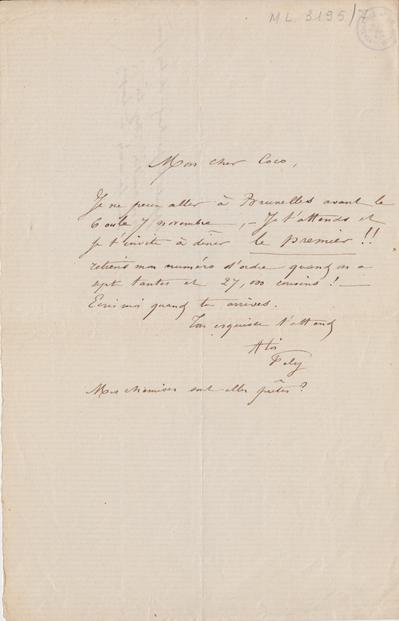 ML 3195/7
Mon cher Coco,
Je ne peux aller à Bruxelles avant le
6 ou le 7 novembre, – Je t'attends et
je t'invite à dîner le premier !!
retiens mon numéro d'ordre quand on a
sept tantes et 27,000 cousins ! –
Ecris moi quand tu arrives.
Ton esquisse t'attend
A toi
Fély
Mes chemises sont elles prêtes ?